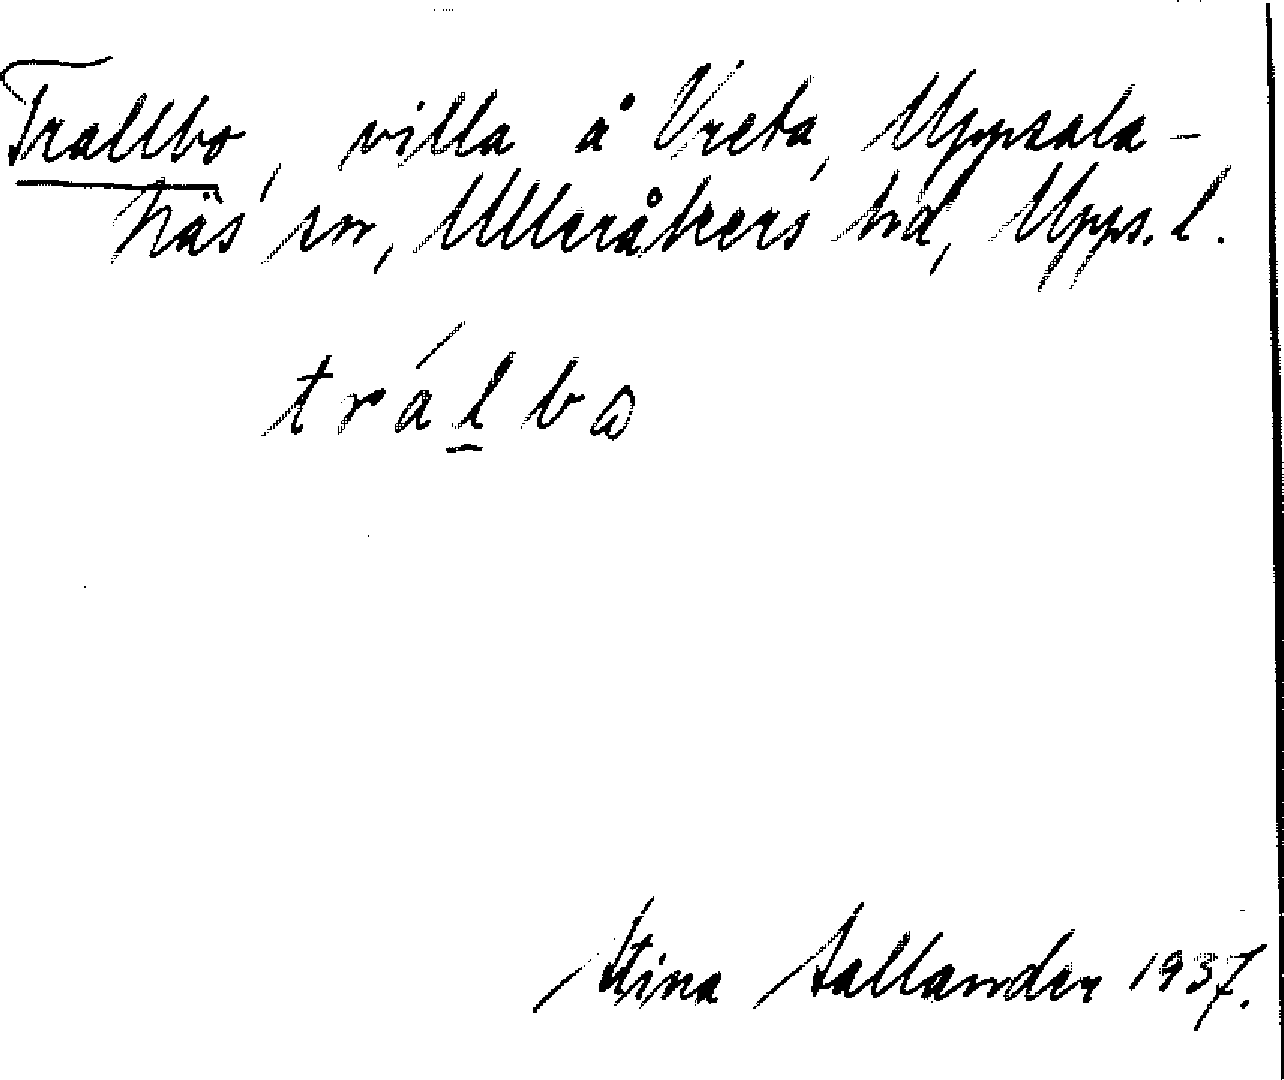 Trallbo, villa å Vreta, Uppsala-
Näs sn, Ulleråkers hd, Upps. l.
trálbω
Stina Sallander 1937.